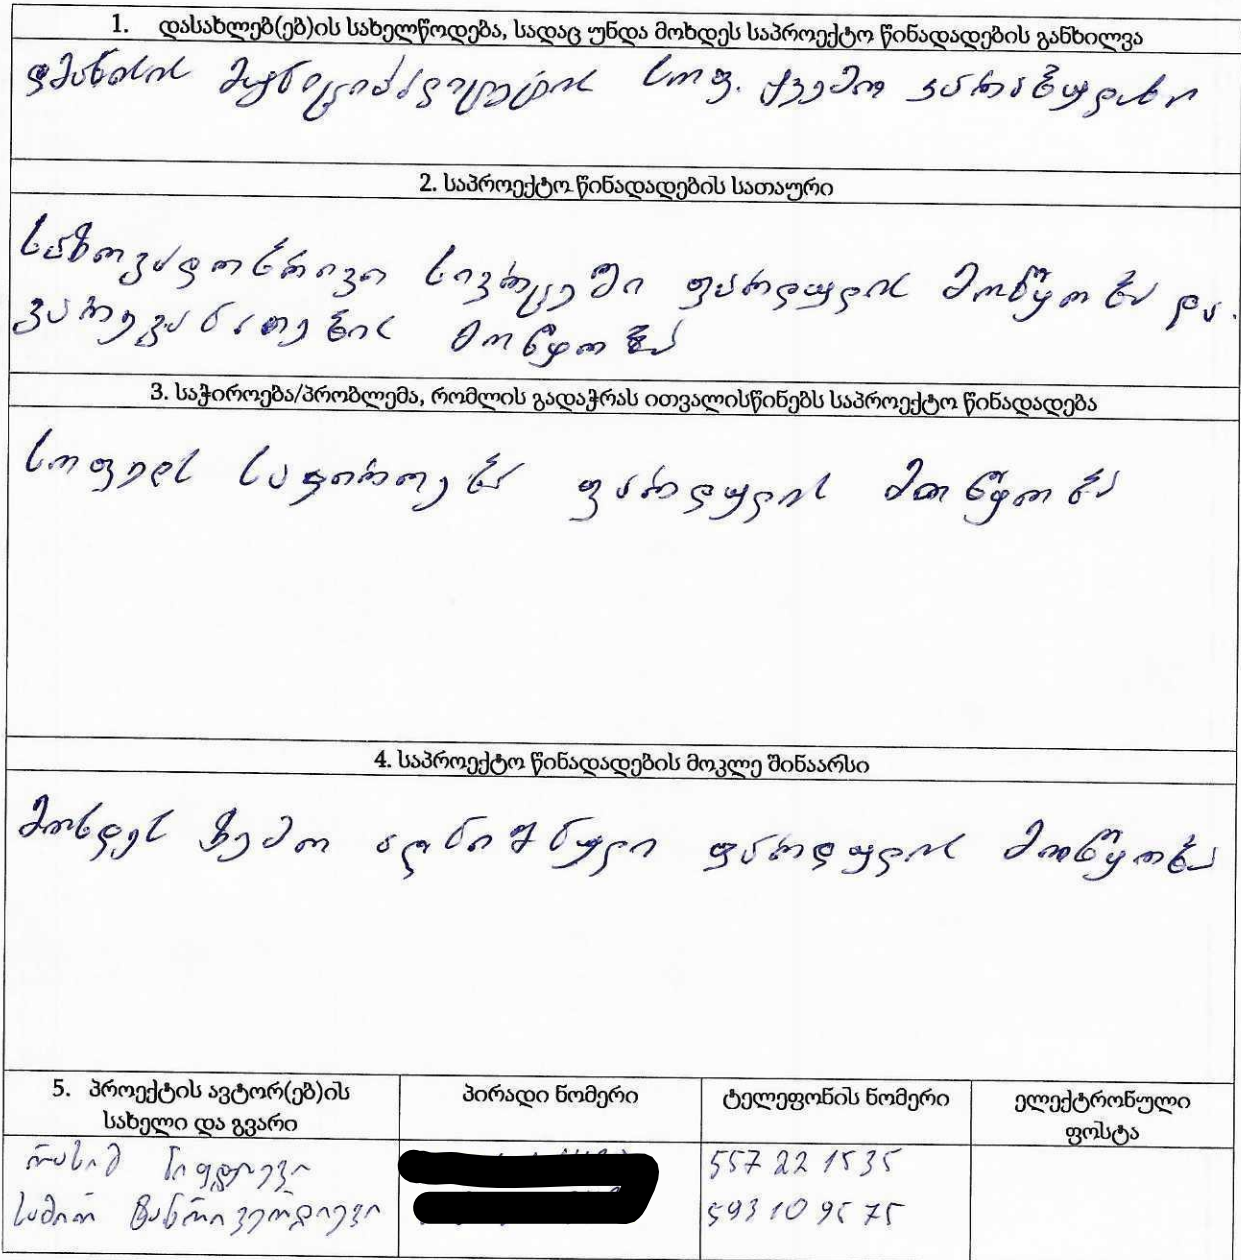 1. დასახლებ(ებ)ის სახელწოდება, სადაც უნდა მოხდეს საპროექტო წინადადების განხილვა
დმანისის მუნიციპალიტეტის სოფ. ქვემო კარაბულახი
2. საპროექტო წინადადების სათაური
საზოგადოებრივი სივრცეში ფარდულის მოწყობა და
გარეგანათების მოწყობა
3. საჭიროება/პრობლემა, რომლის გადაჭრას ითვალისწინებს საპროექტო წინადადება
სოფელს საჭიროება ფარდულის მოწყობა
4. საპროექტო წინადადების მოკლე შინაარსი
მოხდეს ზემო აღნიშნული ფარდულის მოწყობა
5. პროექტის ავტორ(ებ)ის სახელი და გვარი
პირადი ნომერი
ტელეფონის ნომერი
ელექტრონული ფოსტა
რასიმ 557 22 1535
სამირ 593 10 95 75